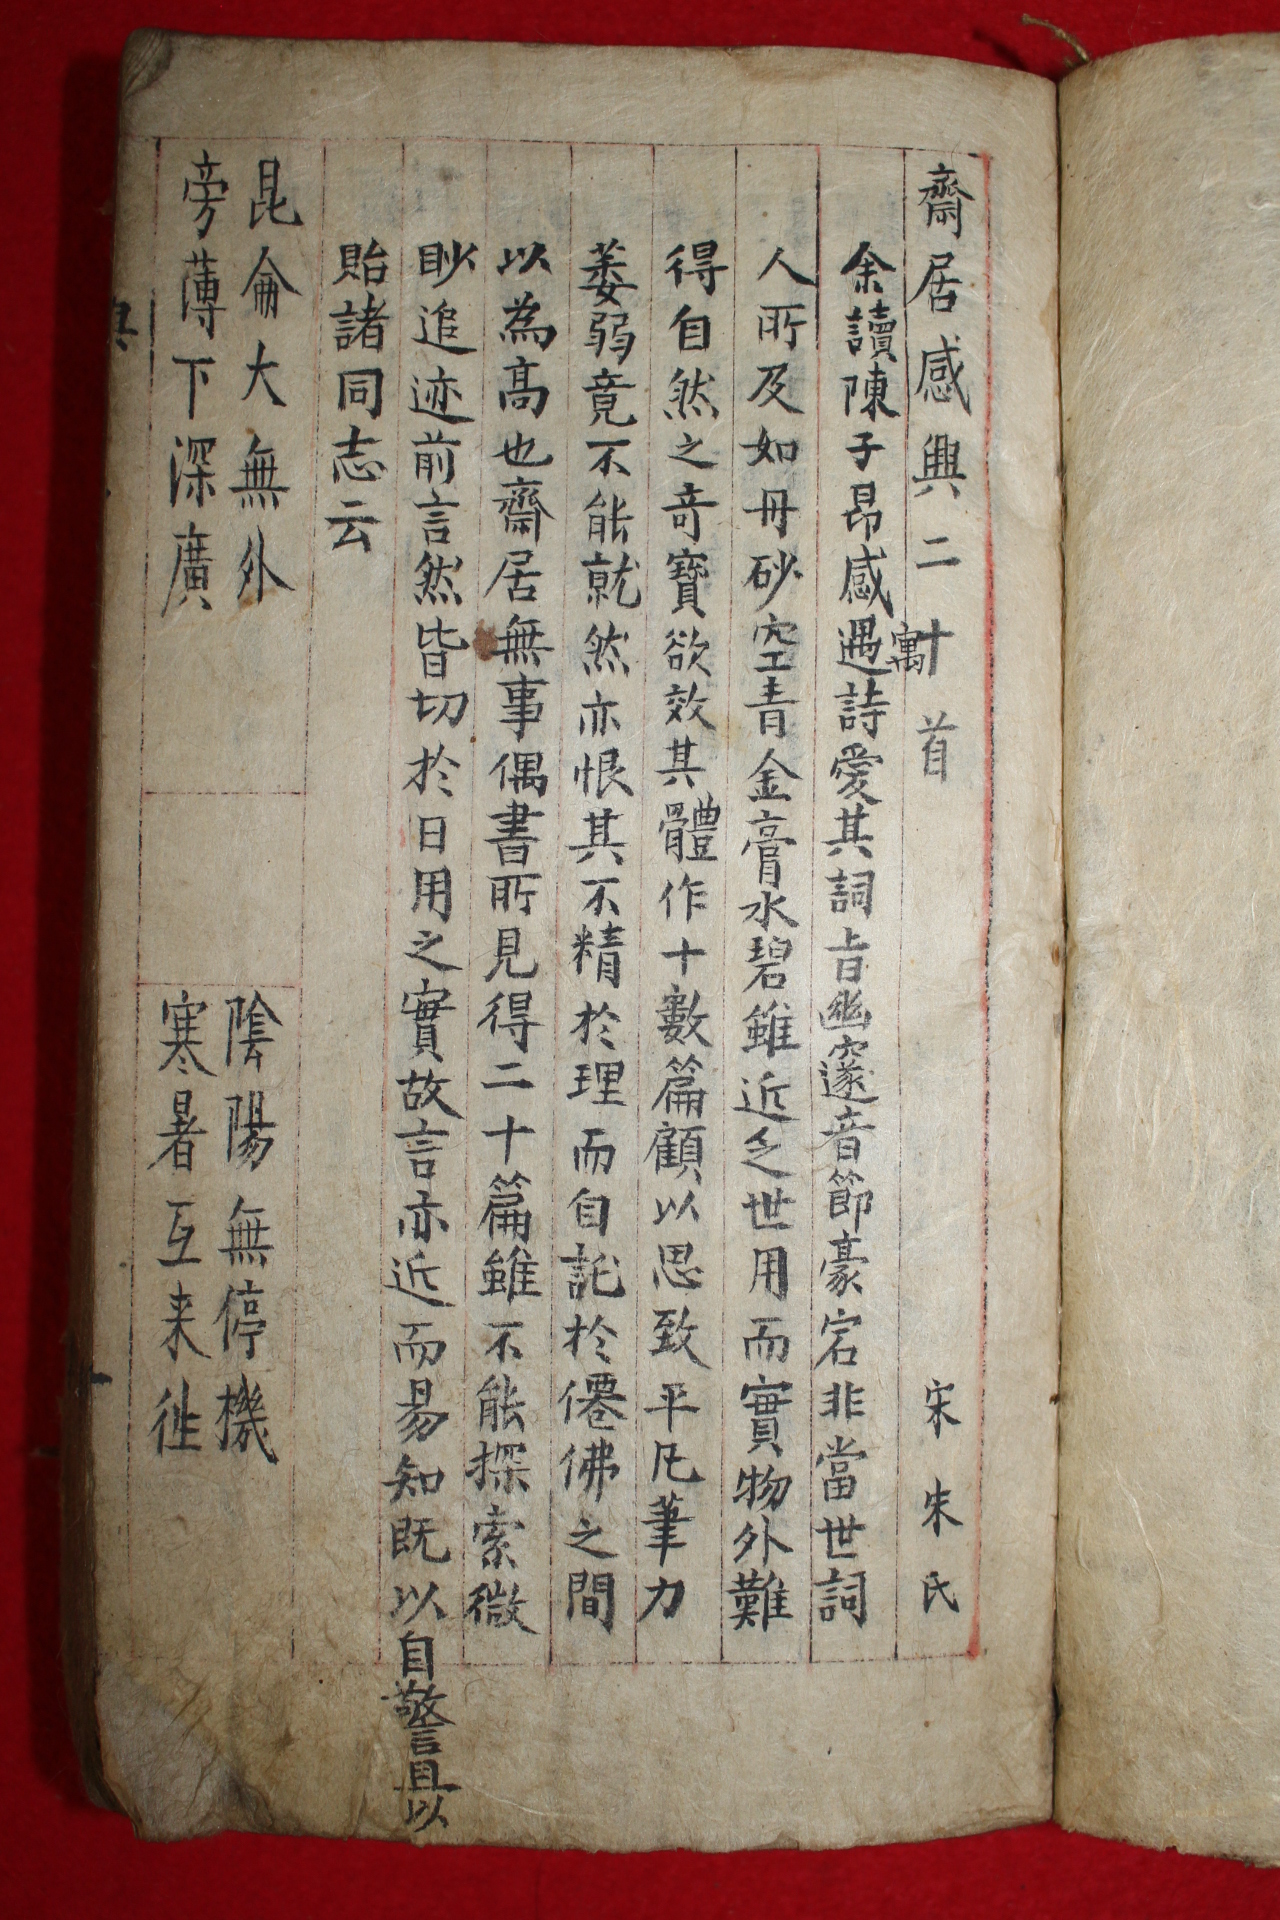 齋居感興二十首　宋朱氏
余讀陳子昂感遇詩愛其詞旨幽邃音節豪宕非當世詞
寓
人所及如丹砂空青金膏水碧雖近乏世用而實物外難
得自然之奇寶欲效其體作十數篇顧以思致平凡筆力
萎弱竟不能就然亦恨其不精於理而自託於僊佛之間
以為高也齋居無事偶書所見得二十篇雖不能探索微
眇追迹前言然皆切於日用之實故言亦近而易知既以自警且以
貽諸同志云
昆侖大無外
旁薄下深廣
陰陽無停機
寒暑互来徃